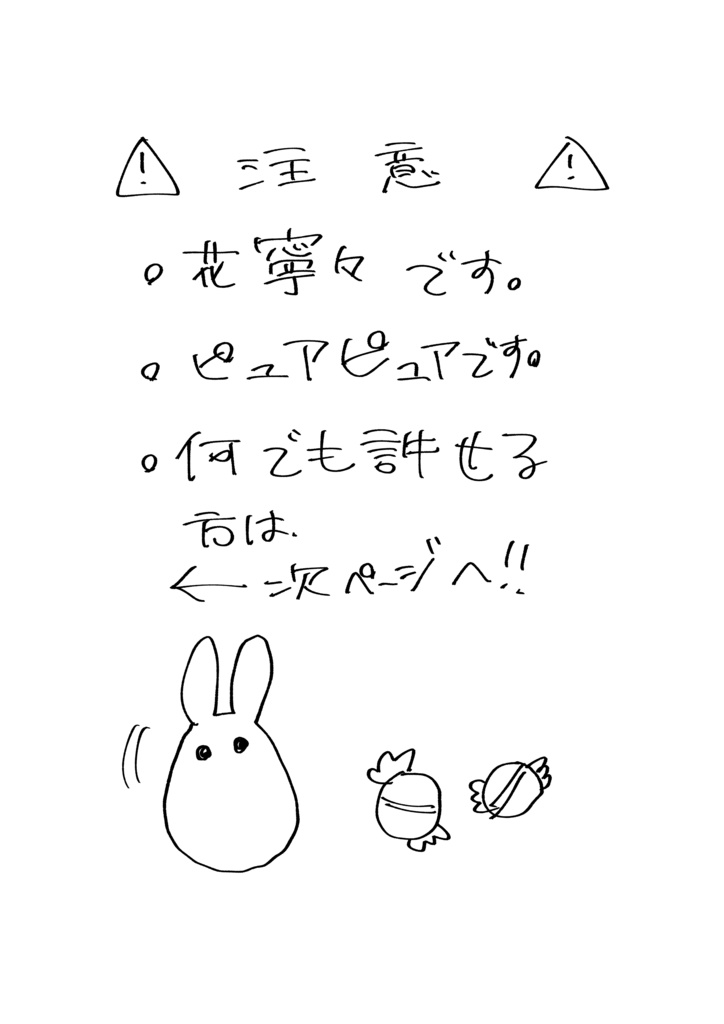 ⚠ 注意 ⚠
。花寧々です。
。ピュアピュアです。
。何でも許せる
方は、
← 次ページへ!!